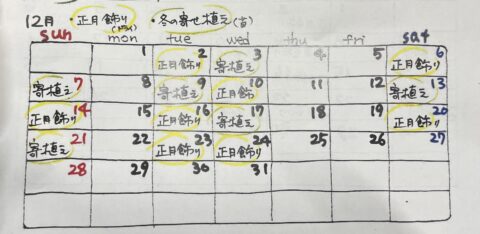 12月 ・正月飾り ・冬の寄せ植え(吉)
sun mon tue wed thu fri sat
1 2 3 4 5 6
正月飾り 寄植え 正月飾り
7 8 9 10 11 12 13
寄植え 寄植え 正月飾り 寄植え
14 15 16 17 18 19 20
正月飾り 正月飾り 寄植え 正月飾り
21 22 23 24 25 26 27
寄植え 正月飾り 正月飾り
28 29 30 31